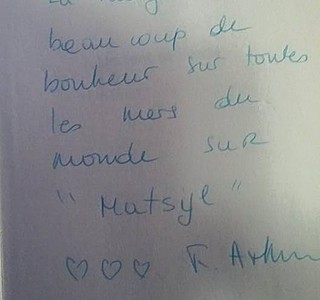 beaucoup de
bonheur sur toutes
les mers du
monde sur
"Matsye"
F.